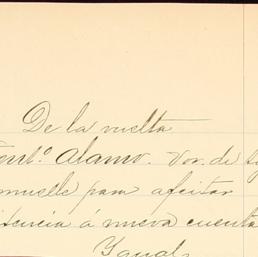 De la vuelta
Alamo. Vor. de
muelle para afeitar
á nueva cuenta
Igual